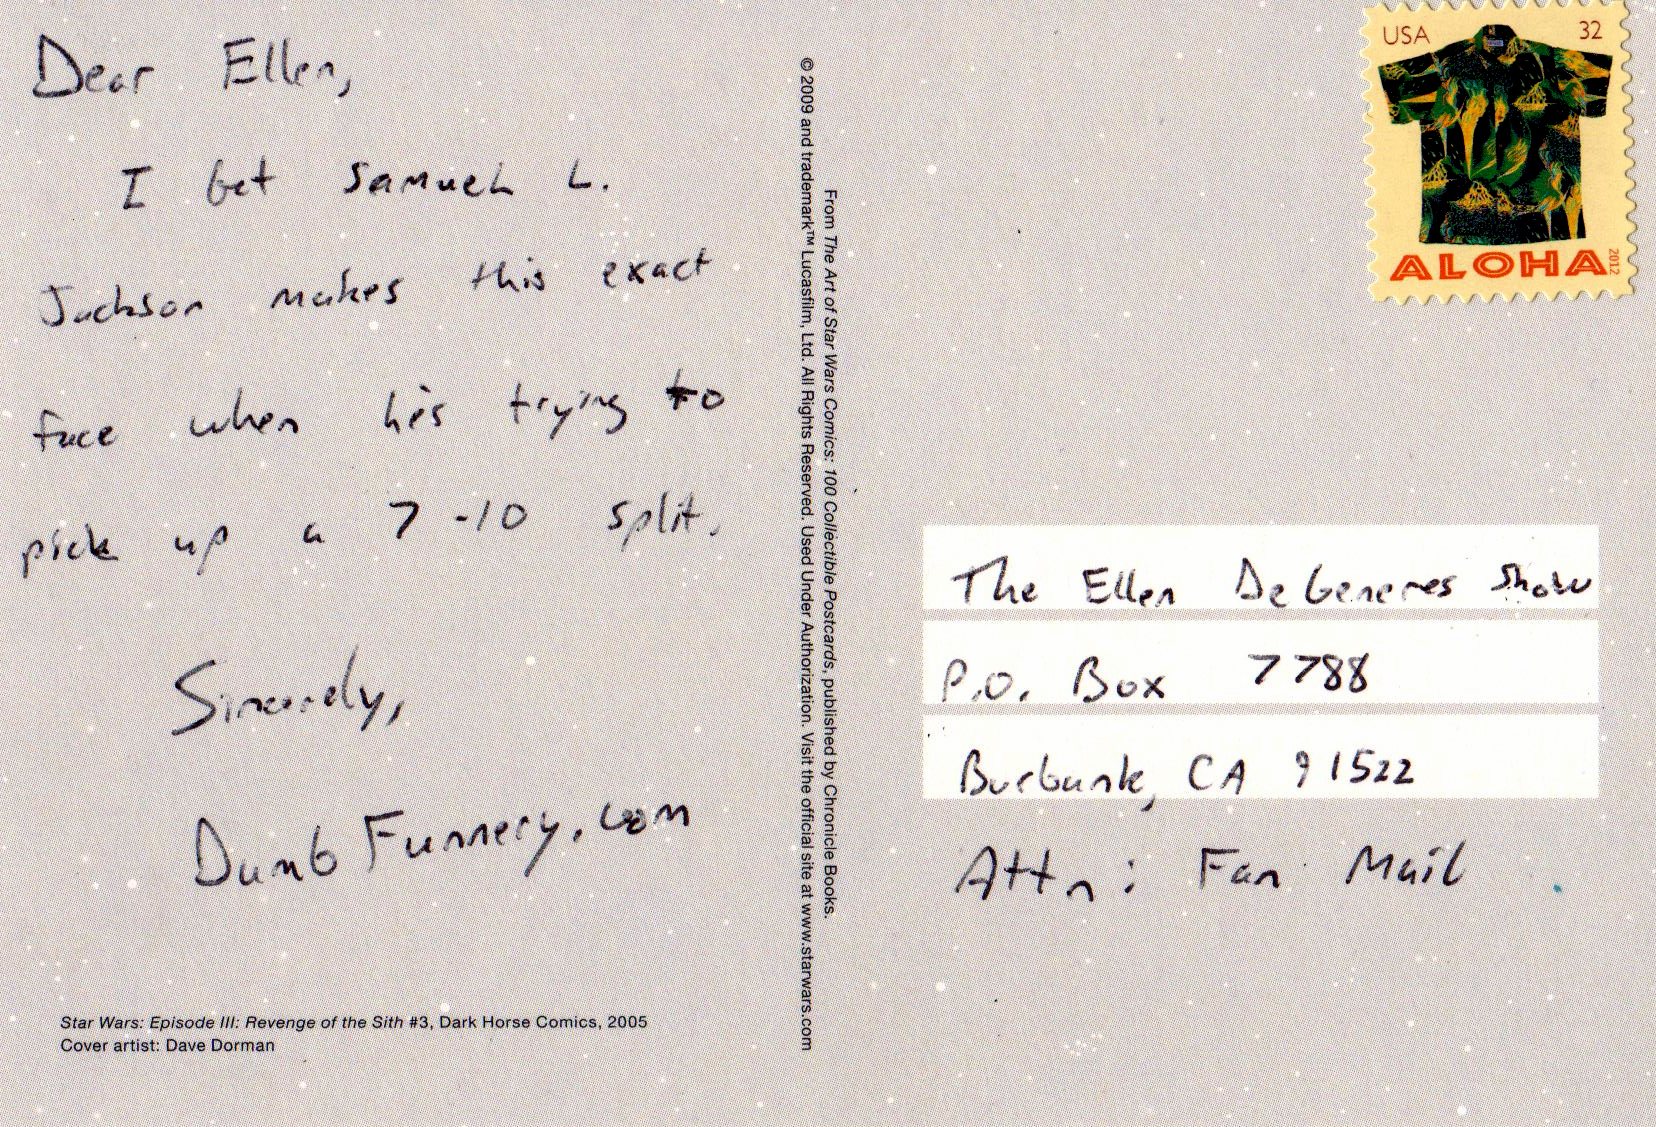 Dear Ellen,
I bet Samuel L.
Jackson makes this exact
face when he's trying to
pick up a 7-10 split.
Sincerely,
DumbFunnery.com
Star Wars: Episode III: Revenge of the Sith #3, Dark Horse Comics, 2005
Cover artist: Dave Dorman
From The Art of Star Wars Comics: 100 Collectible Postcards, published by Chronicle Books.
© 2009 and trademark™ Lucasfilm, Ltd. All Rights Reserved. Used Under Authorization. Visit the official site at www.starwars.com
USA 32
ALOHA 2012
The Ellen DeGeneres Show
P.O. Box 7788
Burbank, CA 91522
Attn: Fan Mail